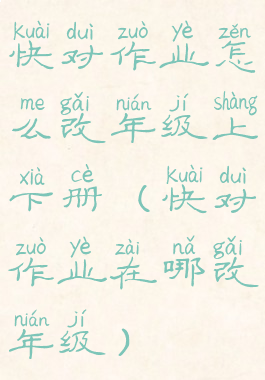 kuài duì zuò yè zěn
快对作业怎
me gǎi nián jí shàng
么改年级上
xià cè kuài duì
下册（快对
zuò yè zài nǎ gǎi
作业在哪改
nián jí
年级）